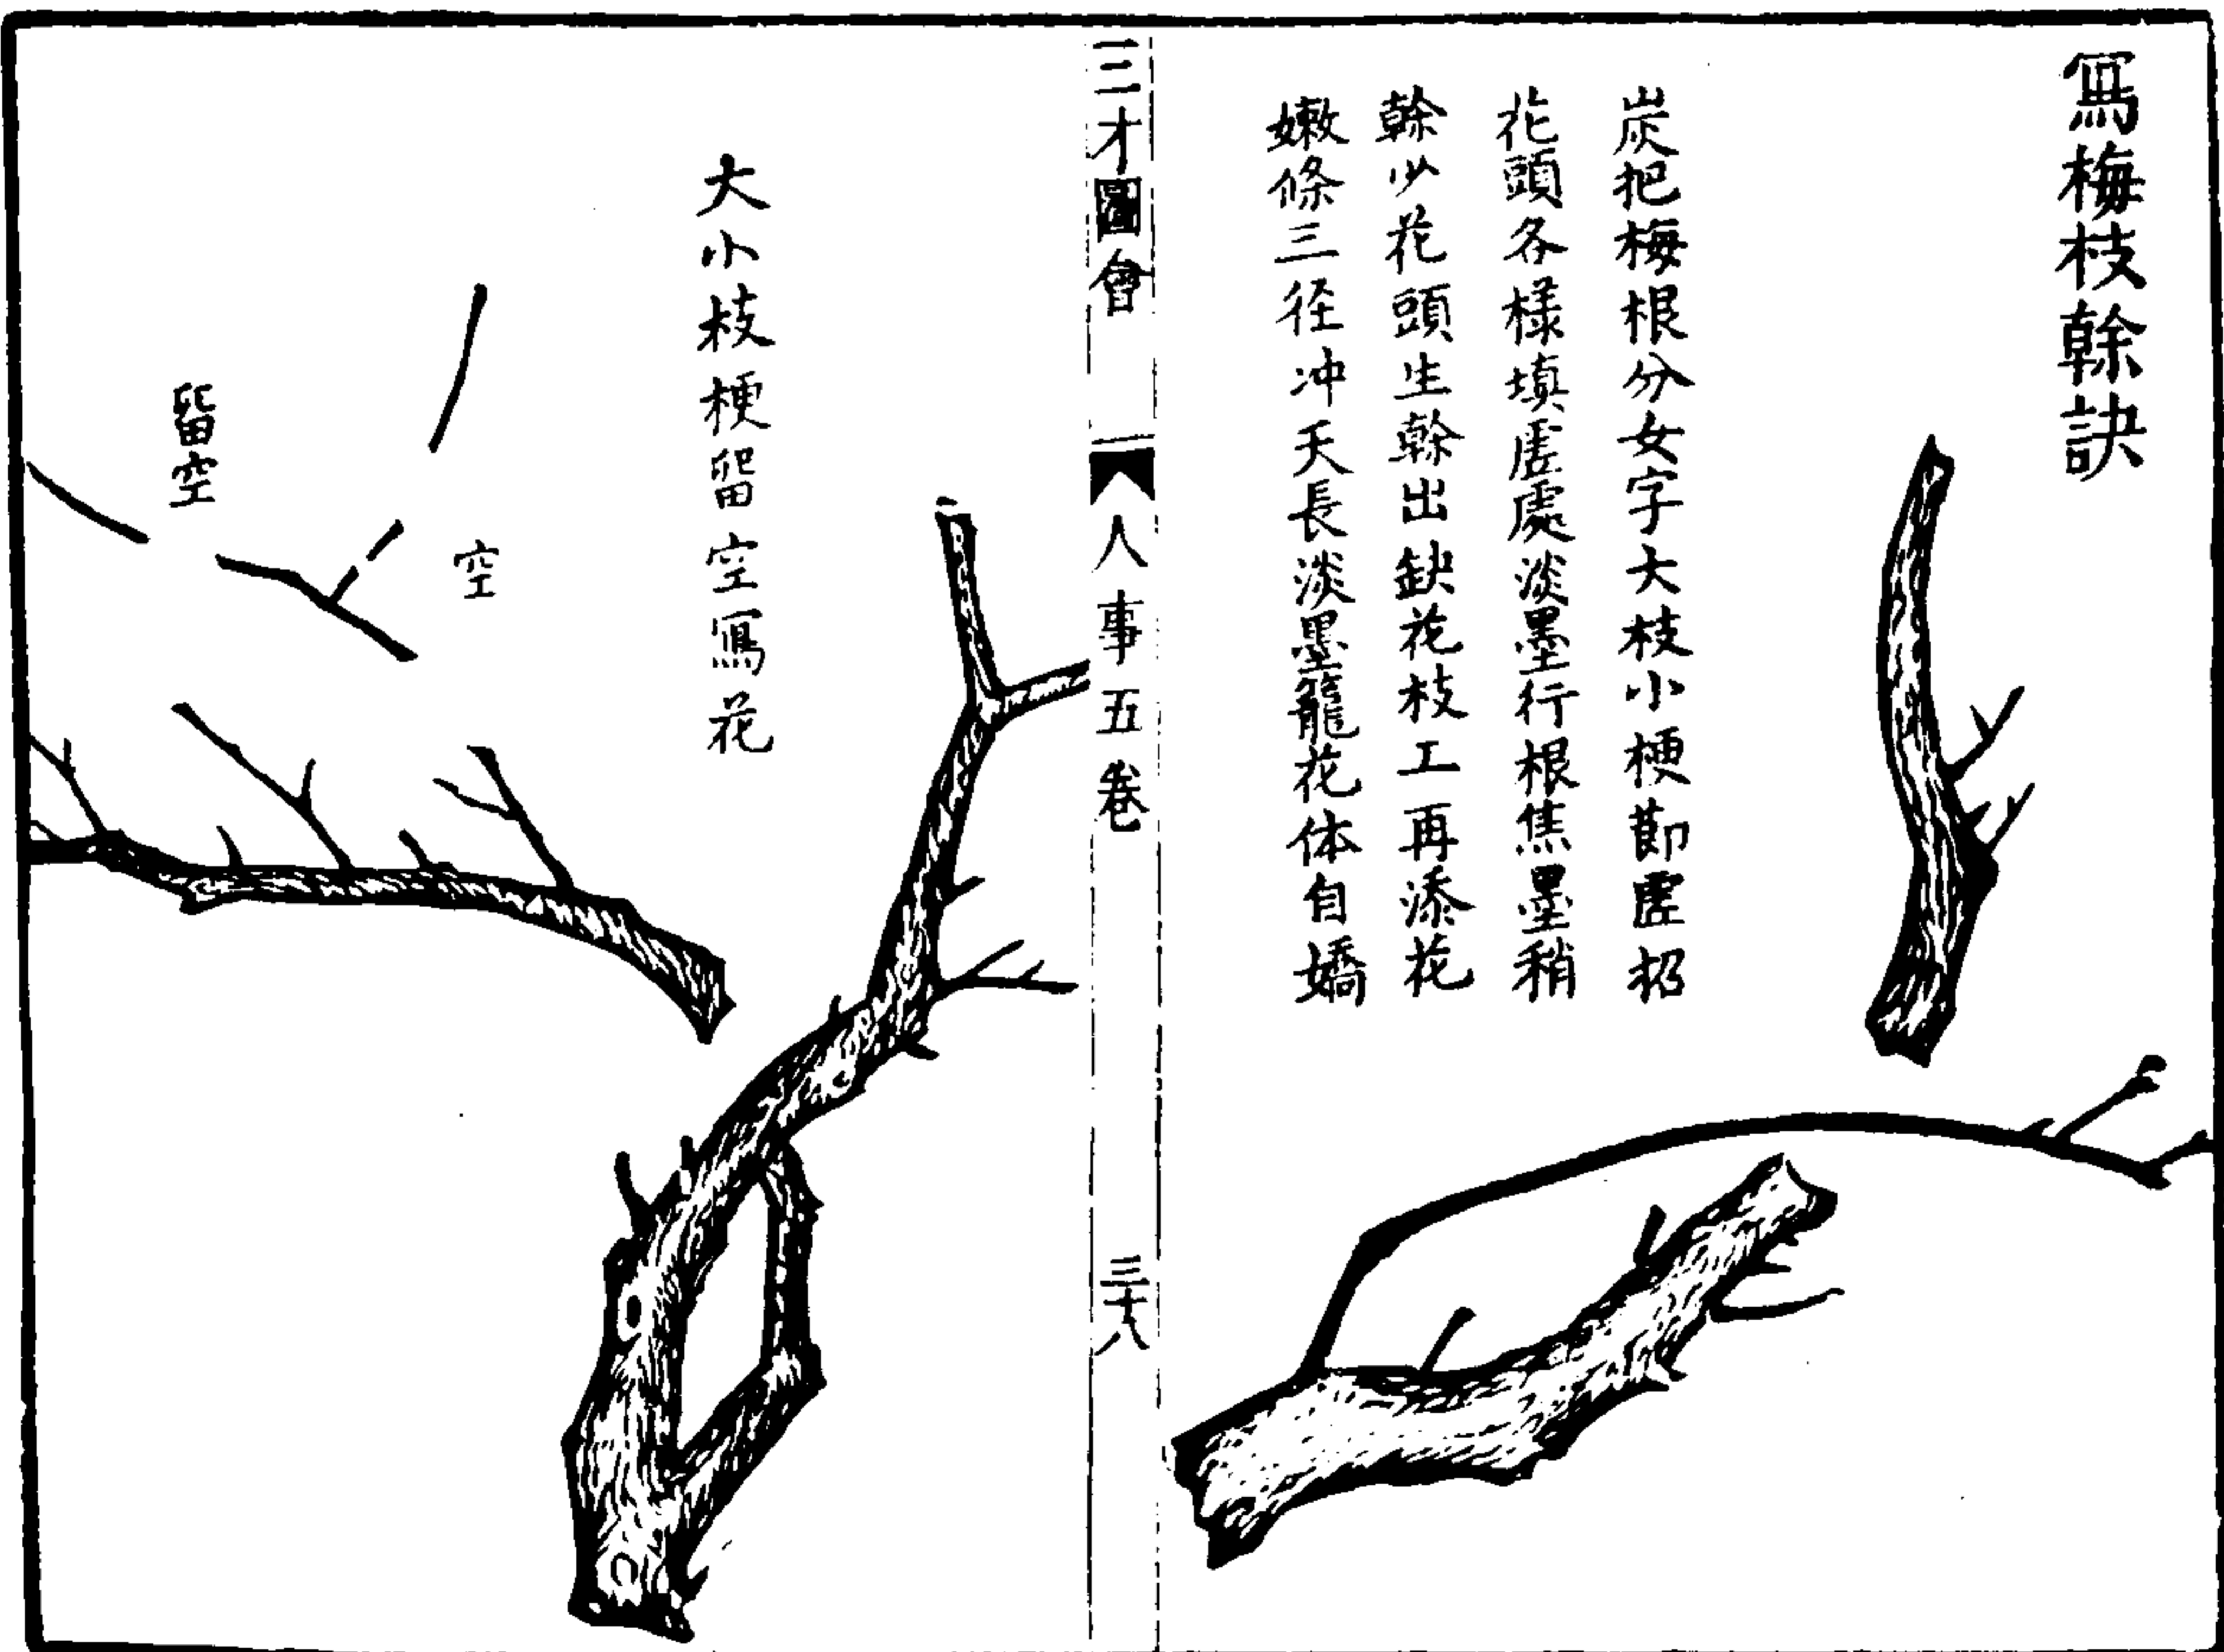 寫梅枝榦訣
炭把梅根分女字大枝小梗節虛招
花頭各樣填虛處淡墨行根焦墨稍
榦少花頭生榦出缺花枝工再添花
嫩條三径冲天長淡墨籠花体自嬌
三才圖會
人事五卷
三十八
大小枝梗留空寫花
空
留空